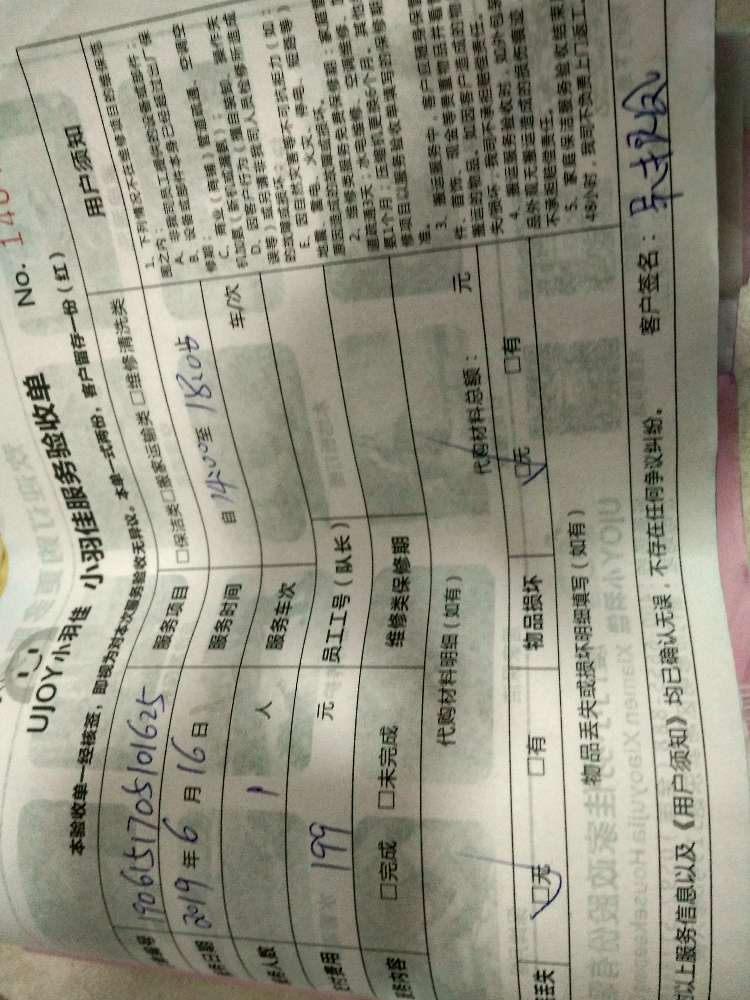 No. 140
UJOY小羽佳 小羽佳服务验收单
本验收单一经核签，即视为对本次服务验收无异议。本单一式两份，客户留存一份（红）
编号 190615170510 1625 服务项目 □保洁类□搬家运输类 □维修清洗类
日期 2019年6月16日 服务时间 自14:00至18:00
人数 1 人 服务车次 车/次
费用 199 元 员工工号（队长）
内容 □完成 □未完成 维修类保修期
代购材料明细（如有） 代购材料总额： 元
丢失 □无 □有 物品损坏 □无 □有
物品丢失或损坏明细填写（如有）
以上服务信息以及《用户须知》均已确认无误，不存在任何争议纠纷。
客户签名：
用户须知
1、下列情况不在维修项目的维保范
围之内：
A、非我司员工提供的设备或部件；
B、设备或部件本身已经超过出厂保
修期；
C、商业（商铺）管道疏通、空调空
机加氟（新机或漏氟）；
D、因客户行为（擅自装卸、操作失
误等）或另请非我司人员检修所造成
的故障或损坏；
E、因自然灾害等不可抗拒力（如：
地震、雷电、火灾、停电、短路等）
原因造成的故障或损坏。
2、维修类服务免费保修期：家庭管
道疏通3天；水电维修、空调维修、加
氟1个月；压缩机更换6个月，其他
修项目以服务验收单填写的保修期
准。
3、搬运服务中，客户应随身保管
件、首饰、现金等贵重物品并看管
搬运的物品，如因客户造成的物
失/损坏，我司不承担赔偿责任。
4、搬运服务验收时，如外包装
品外观无搬运造成的损伤痕迹
不承担赔偿责任。
5、家庭保洁服务验收结束
48小时，我司不负责上门返工。